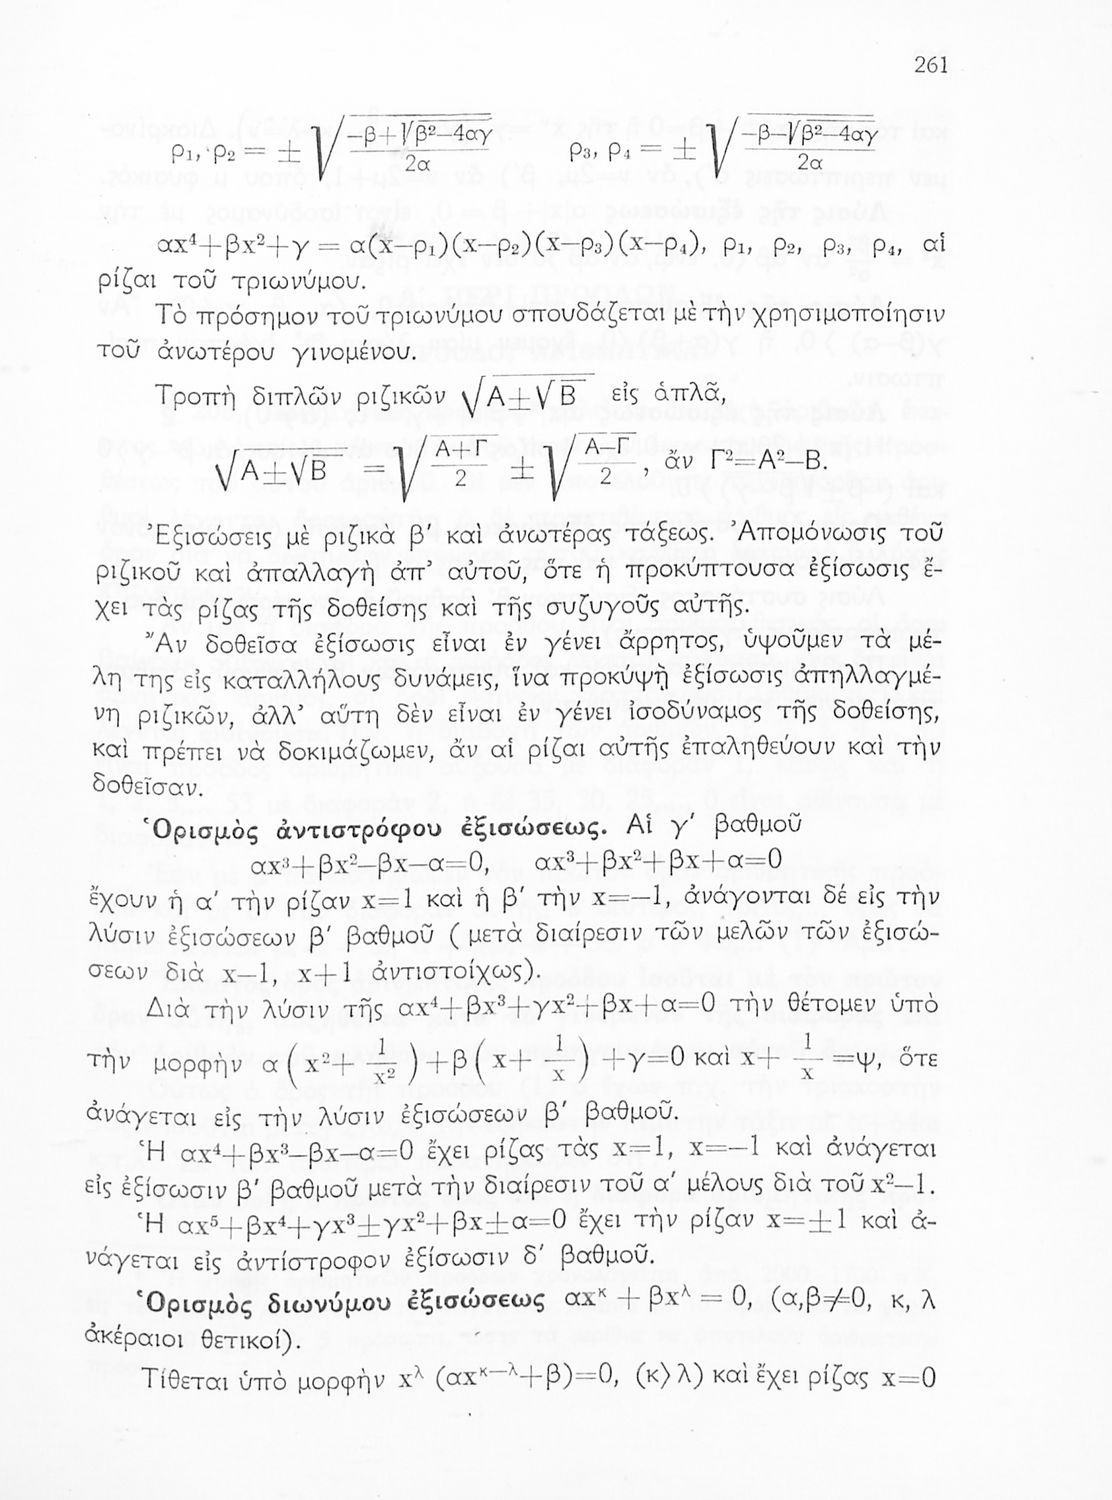 261
ρ₁, ρ₂ = ± √((−β+√(β²−4αγ))/2α)   ρ₃, ρ₄ = ± √((−β−√(β²−4αγ))/2α)
αx⁴+βx²+γ = α(x−ρ₁)(x−ρ₂)(x−ρ₃)(x−ρ₄), ρ₁, ρ₂, ρ₃, ρ₄, αἱ
ρίζαι τοῦ τριωνύμου.
Τὸ πρόσημον τοῦ τριωνύμου σπουδάζεται μὲ τὴν χρησιμοποίησιν
τοῦ ἀνωτέρου γινομένου.
Τροπὴ διπλῶν ριζικῶν √(Α±√Β) εἰς ἁπλᾶ,
√(Α±√Β) = √((Α+Γ)/2) ± √((Α−Γ)/2), ἄν Γ²=Α²−Β.
Ἐξισώσεις μὲ ριζικὰ β′ καὶ ἀνωτέρας τάξεως. Ἀπομόνωσις τοῦ
ριζικοῦ καὶ ἀπαλλαγὴ ἀπ’ αὐτοῦ, ὅτε ἡ προκύπτουσα ἐξίσωσις ἔ-
χει τὰς ρίζας τῆς δοθείσης καὶ τῆς συζυγοῦς αὐτῆς.
Ἂν δοθεῖσα ἐξίσωσις εἶναι ἐν γένει ἄρρητος, ὑψοῦμεν τὰ μέ-
λη της εἰς καταλλήλους δυνάμεις, ἵνα προκύψῃ ἐξίσωσις ἀπηλλαγμέ-
νη ριζικῶν, ἀλλ’ αὕτη δὲν εἶναι ἐν γένει ἰσοδύναμος τῆς δοθείσης,
καὶ πρέπει νὰ δοκιμάζωμεν, ἄν αἱ ρίζαι αὐτῆς ἐπαληθεύουν καὶ τὴν
δοθεῖσαν.
Ὁρισμὸς ἀντιστρόφου ἐξισώσεως. Αἱ γ′ βαθμοῦ
αx³+βx²−βx−α=0, αx³+βx²+βx+α=0
ἔχουν ἡ α′ τὴν ρίζαν x=1 καὶ ἡ β′ τὴν x=−1, ἀνάγονται δέ εἰς τὴν
λύσιν ἐξισώσεων β′ βαθμοῦ ( μετὰ διαίρεσιν τῶν μελῶν τῶν ἐξισώ-
σεων διὰ x−1, x+1 ἀντιστοίχως).
Διὰ τὴν λύσιν τῆς αx⁴+βx³+γx²+βx+α=0 τὴν θέτομεν ὑπὸ
τὴν μορφὴν α ( x²+ 1/x² ) +β ( x+ 1/x ) +γ=0 καὶ x+ 1/x =ψ, ὅτε
ἀνάγεται εἰς τὴν λύσιν ἐξισώσεων β′ βαθμοῦ.
Ἡ αx⁴+βx³−βx−α=0 ἔχει ρίζας τὰς x=1, x=−1 καὶ ἀνάγεται
εἰς ἐξίσωσιν β′ βαθμοῦ μετὰ τὴν διαίρεσιν τοῦ α′ μέλους διὰ τοῦ x²−1.
Ἡ αx⁵+βx⁴+γx³±γx²+βx±α=0 ἔχει τὴν ρίζαν x=±1 καὶ ἀ-
νάγεται εἰς ἀντίστροφον ἐξίσωσιν δ′ βαθμοῦ.
Ὁρισμὸς διωνύμου ἐξισώσεως αxᵏ + βx^λ = 0, (α,β≠0, κ, λ
ἀκέραιοι θετικοί).
Τίθεται ὑπὸ μορφὴν x^λ (αx^(κ−λ)+β)=0, (κ⟩ λ) καὶ ἔχει ρίζας x=0